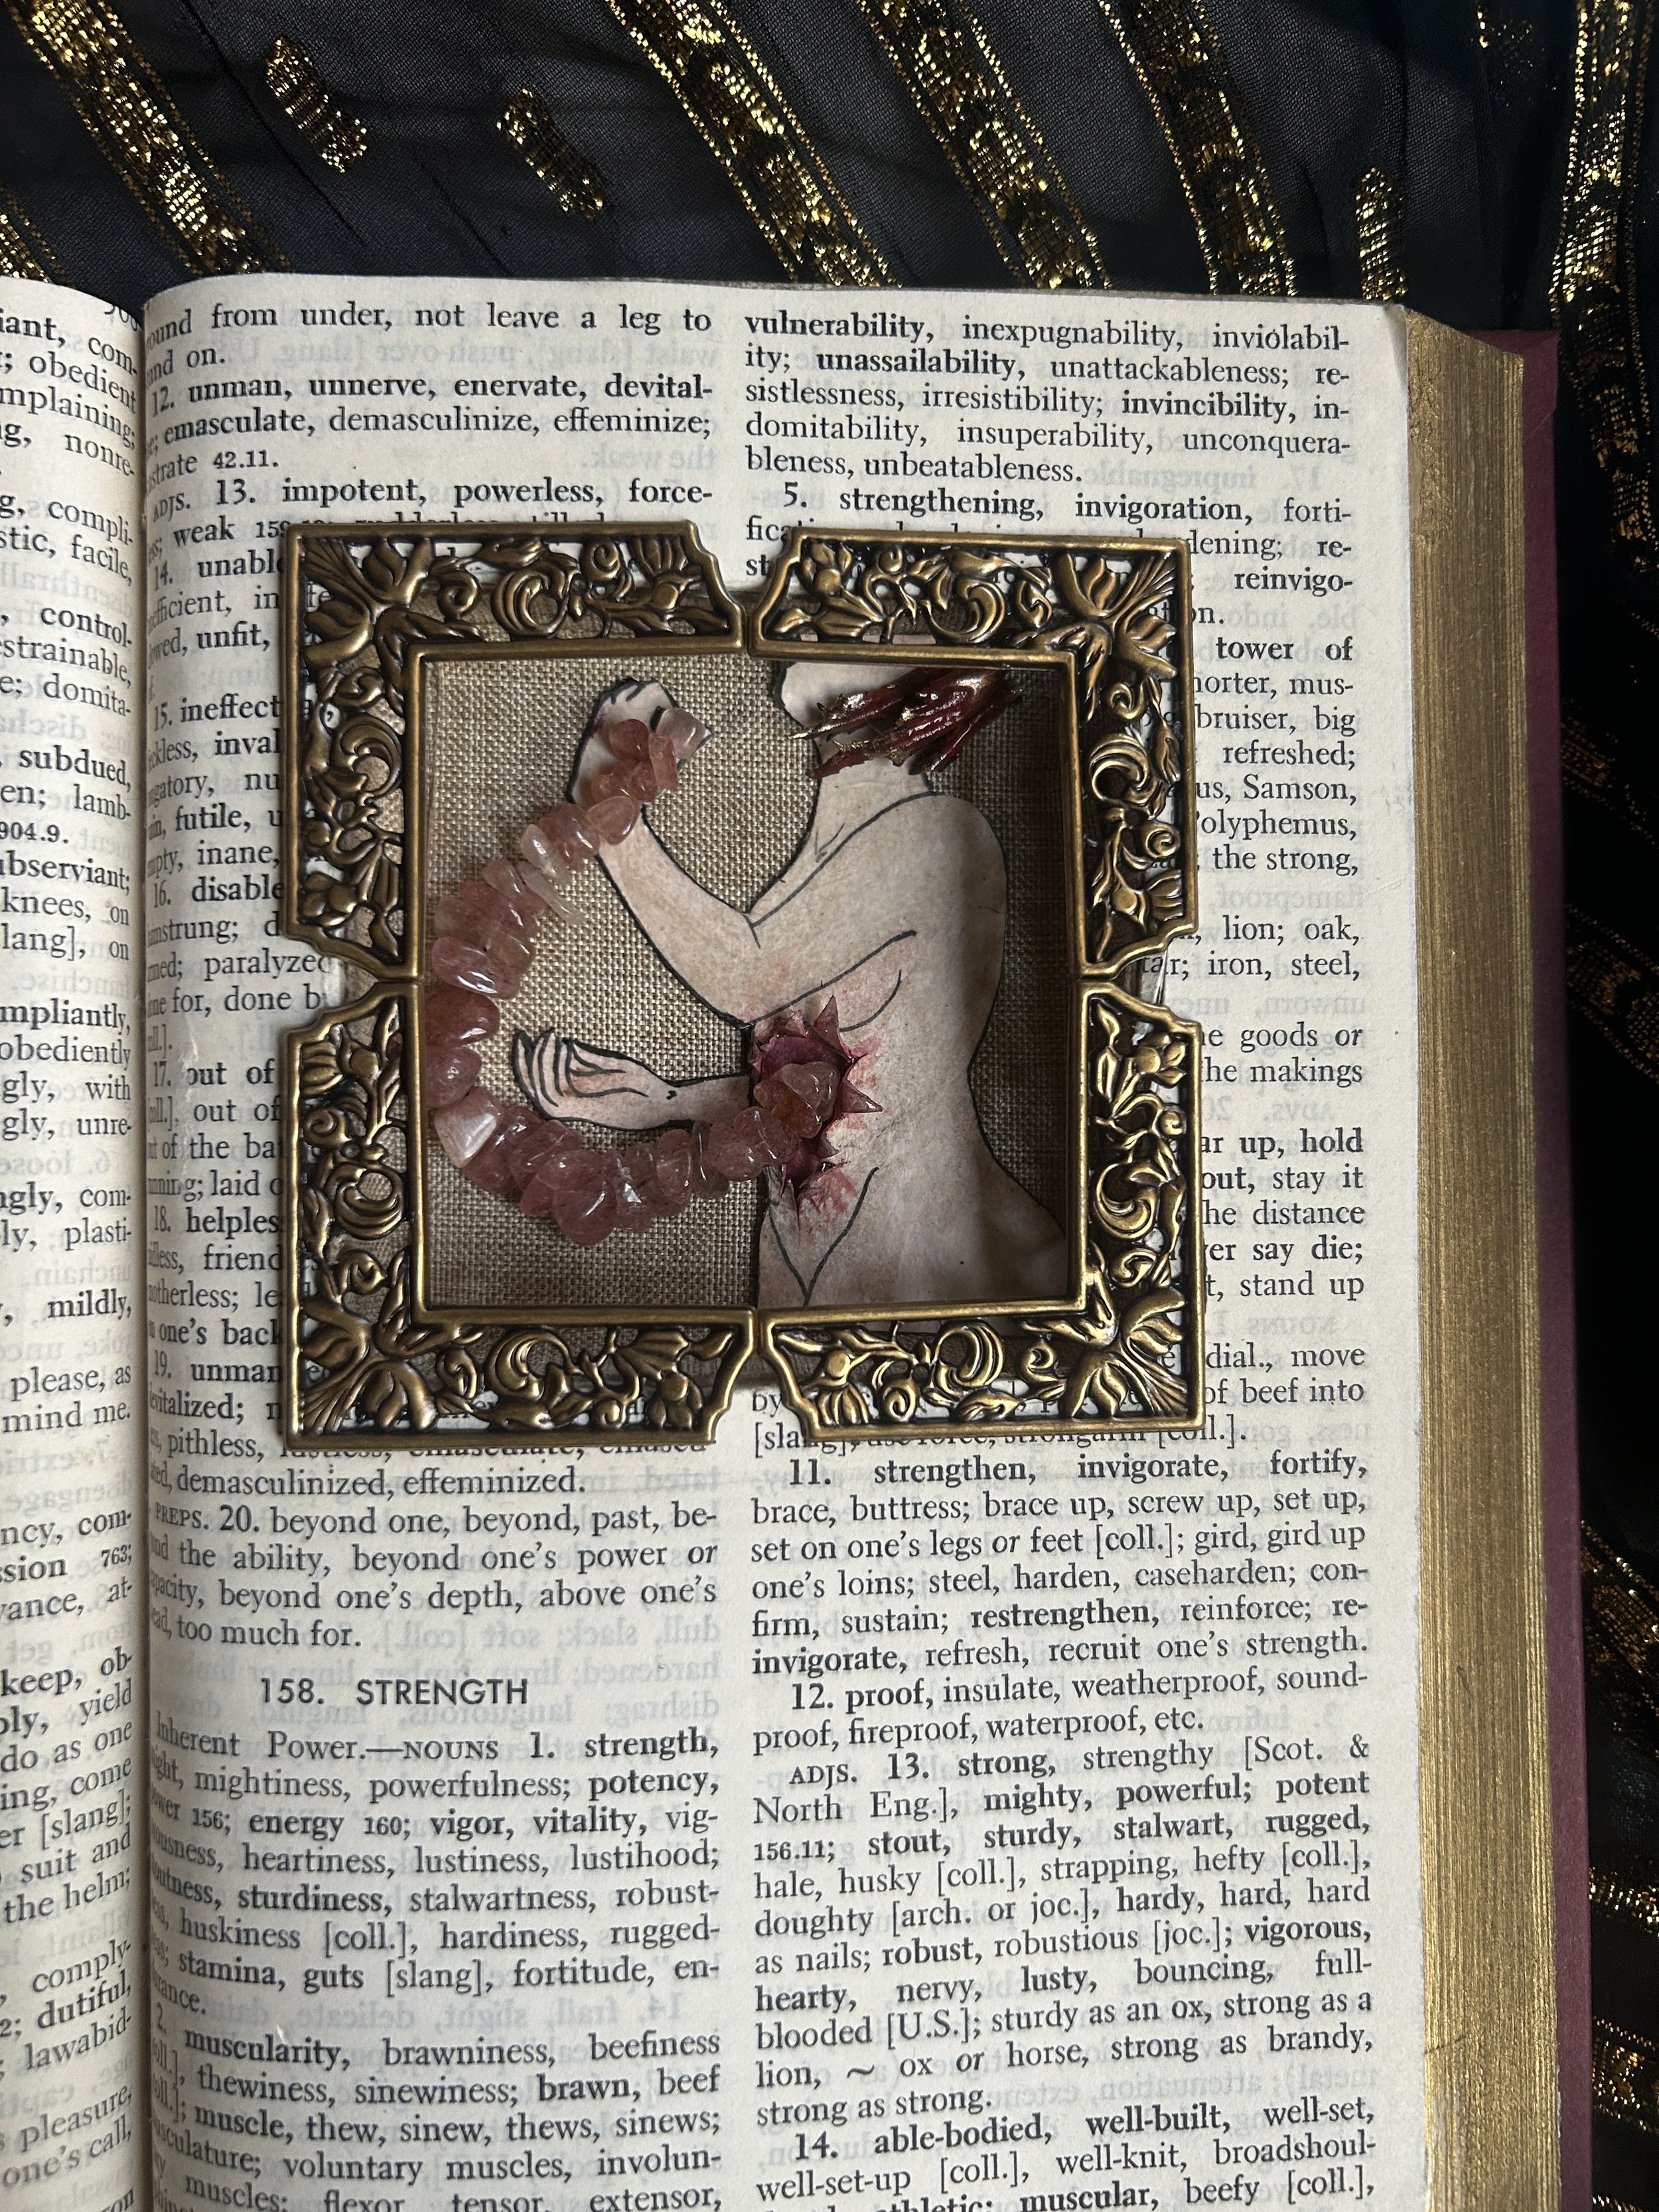 iant, com-
; obedient
mplaining;
g, nonre-
g, compli-
stic, facile,
, control-
estrainable,
e; domita-
, subdued,
en; lamb-
904.9.
ubserviant;
knees, on
lang], on
mpliantly,
obediently
gly, with
gly, unre-
ngly, com-
ly, plasti-
, mildly,
please, as
mind me.
ncy, com-
ssion 763;
vance, at-
keep, ob-
ply, yield
do as one
ing, come
er [slang];
suit and
the helm;
, comply-
2; dutiful,
; lawabid-
pleasure,
one's call,
ound from under, not leave a leg to
nd on.
12. unman, unnerve, enervate, devital-
emasculate, demasculinize, effeminize;
strate 42.11.
ADJS. 13. impotent, powerless, force-
weak
14. unabl
fficient, in
owed, unfit,
15. ineffect
ckless, inval
gatory, nu
in, futile, u
mpty, inane,
16. disable
mstrung; d
med; paralyzed
ne for, done b
ll.].
17. out of
oll.], out of
ut of the ba
nning; laid o
18. helples
dless, friend
otherless; le
one's back
19. unman
evitalized; n
pithless,
ted, demasculinized, effeminized.
PREPS. 20. beyond one, beyond, past, be-
nd the ability, beyond one's power or
pacity, beyond one's depth, above one's
ead, too much for.
158. STRENGTH
Inherent Power.—NOUNS 1. strength,
ight, mightiness, powerfulness; potency,
ower 156; energy 160; vigor, vitality, vig-
ousness, heartiness, lustiness, lustihood;
outness, sturdiness, stalwartness, robust-
huskiness [coll.], hardiness, rugged-
stamina, guts [slang], fortitude, en-
rance.
2. muscularity, brawniness, beefiness
oll.], thewiness, sinewiness; brawn, beef
muscle, thew, sinew, thews, sinews;
usculature; voluntary muscles, involun-
muscles; flexor, tensor, extensor,
vulnerability, inexpugnability, inviolabil-
ity; unassailability, unattackableness; re-
sistlessness, irresistibility; invincibility, in-
domitability, insuperability, unconquera-
bleness, unbeatableness.
5. strengthening, invigoration, forti-
fica dening; re-
st reinvigo-
tion.
tower of
horter, mus-
bruiser, big
refreshed;
us, Samson,
Polyphemus,
the strong,
lion; oak,
tar; iron, steel,
he goods or
the makings
ar up, hold
out, stay it
the distance
ver say die;
t, stand up
dial., move
by of beef into
[slang], use force, strongarm [coll.].
11. strengthen, invigorate, fortify,
brace, buttress; brace up, screw up, set up,
set on one's legs or feet [coll.]; gird, gird up
one's loins; steel, harden, caseharden; con-
firm, sustain; restrengthen, reinforce; re-
invigorate, refresh, recruit one's strength.
12. proof, insulate, weatherproof, sound-
proof, fireproof, waterproof, etc.
ADJS. 13. strong, strengthy [Scot. &
North Eng.], mighty, powerful; potent
156.11; stout, sturdy, stalwart, rugged,
hale, husky [coll.], strapping, hefty [coll.],
doughty [arch. or joc.], hardy, hard, hard
as nails; robust, robustious [joc.]; vigorous,
hearty, nervy, lusty, bouncing, full-
blooded [U.S.]; sturdy as an ox, strong as a
lion, ~ ox or horse, strong as brandy,
strong as strong.
14. able-bodied, well-built, well-set,
well-set-up [coll.], well-knit, broadshoul-
athletic; muscular, beefy [coll.],